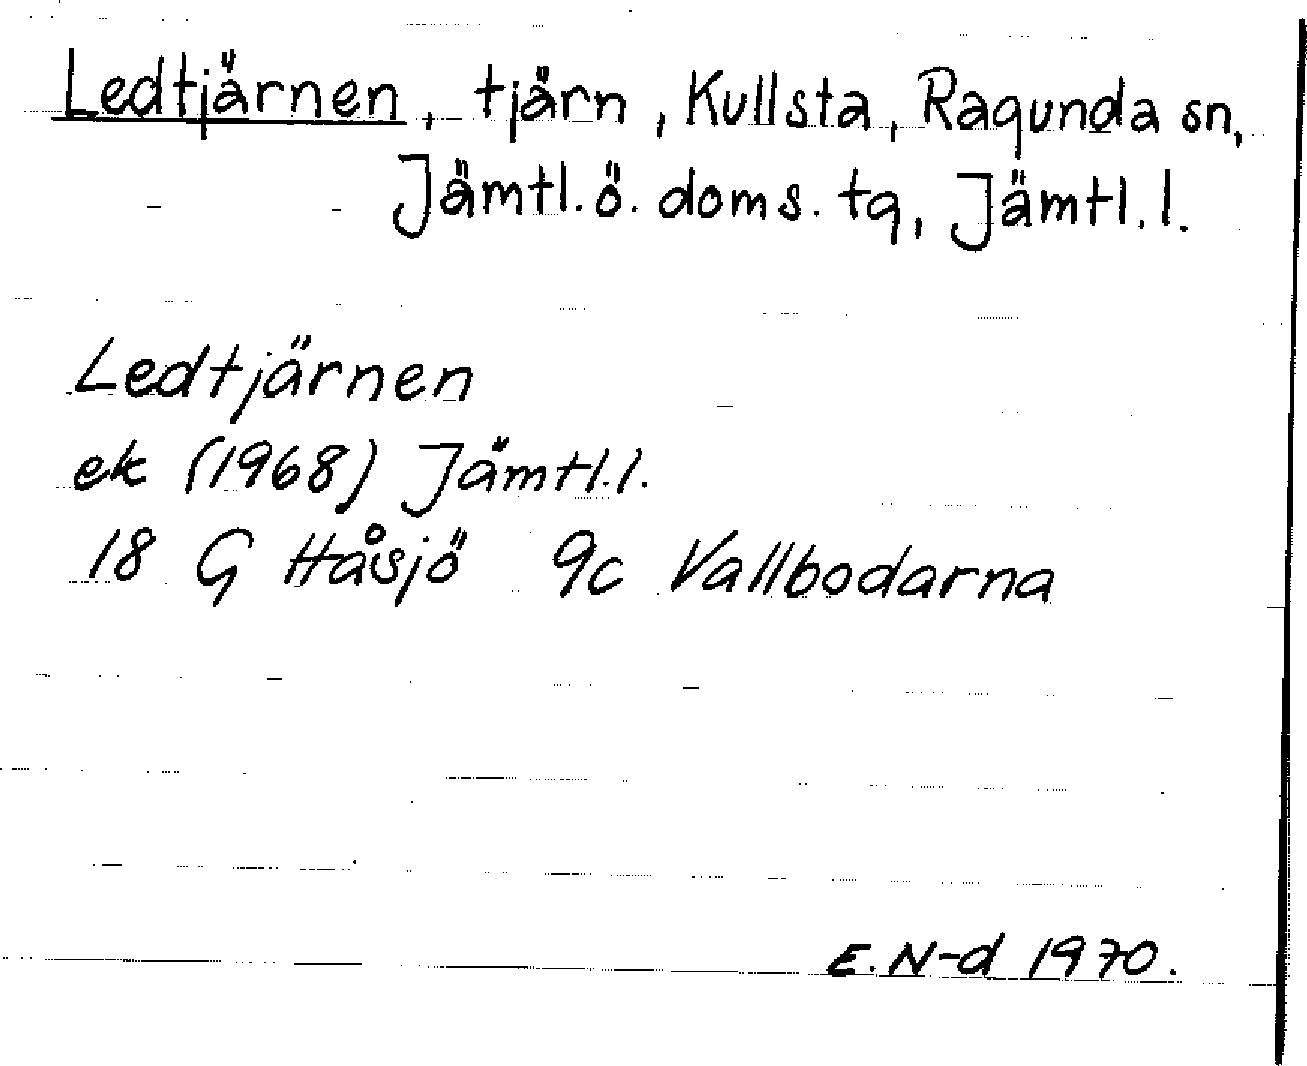 Ledtjärnen, tjärn, Kullsta, Ragunda sn,
Jämtl. ö. doms. tg, Jämtl. l.
Ledtjärnen
ek (1968) Jämtl. l.
18 G Håsjö 9c Vallbodarna
E. N-d 1970.